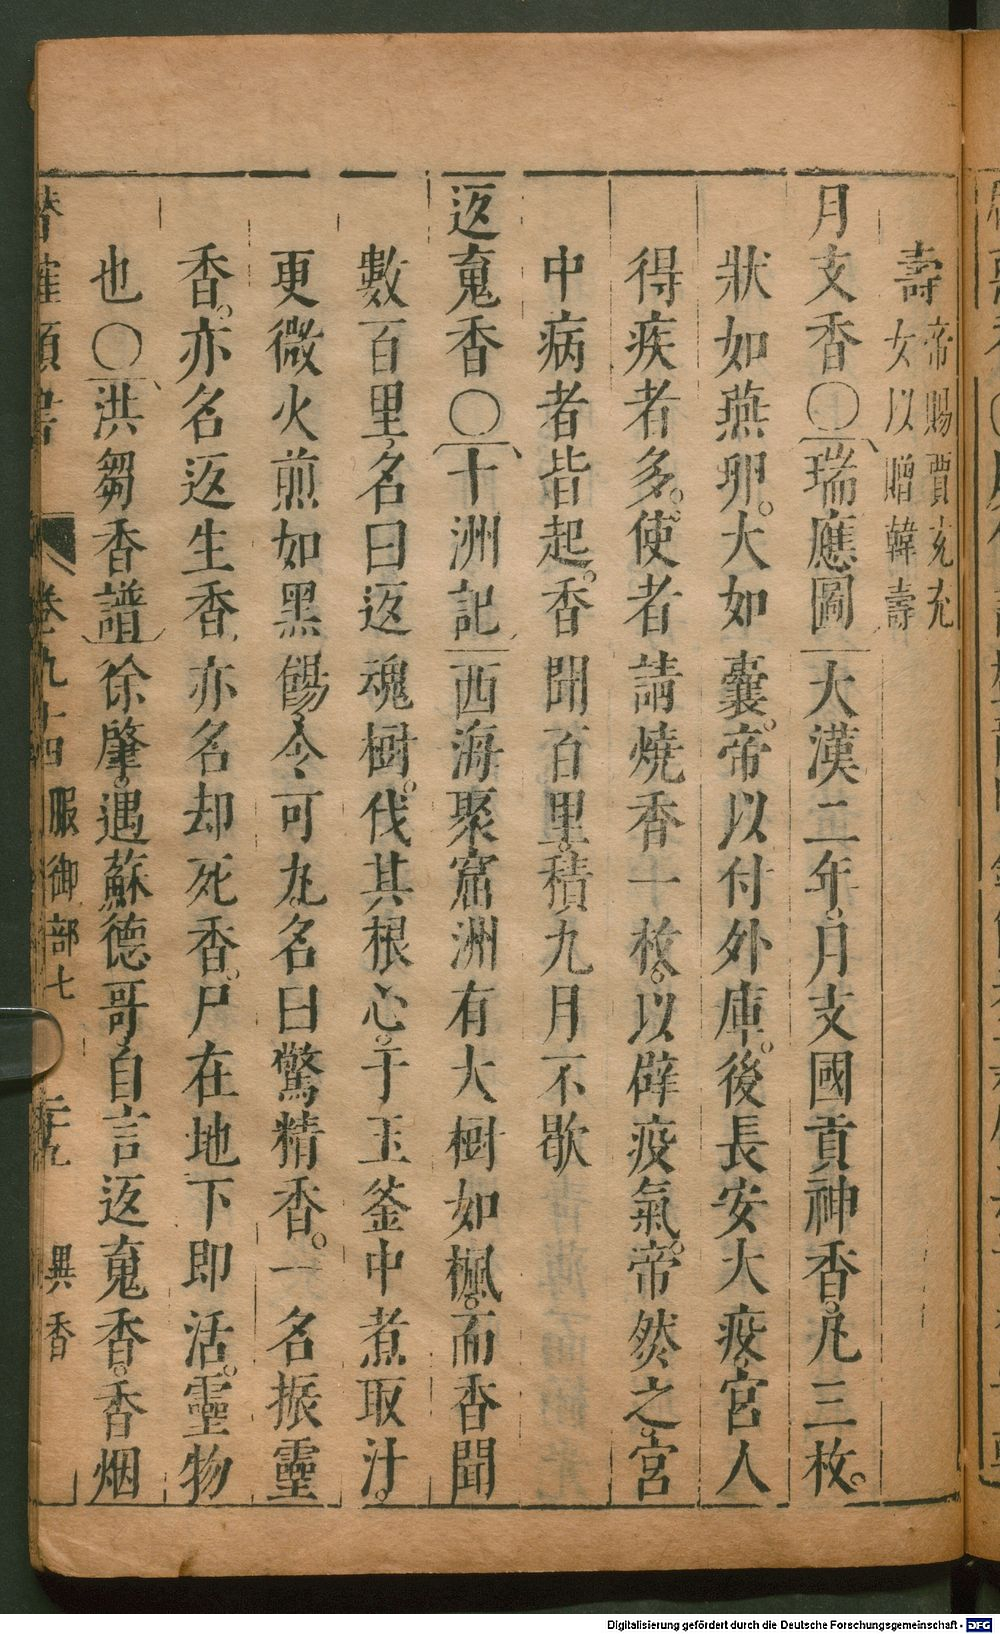 壽帝賜賈充充
女以贈韓壽
月支香〇瑞應圖大漢二年。月支國貢神香。凡三枚。
狀如燕卵。大如棗。帝以付外庫。後長安大疫。宮人
得疾者多。使者請燒香一枚。以辟疫氣。帝然之。宮
中病者皆起。香聞百里。積九月不歇
返䰟香〇十洲記西海聚窟洲有大樹如楓。而香聞
數百里。名曰返魂樹。伐其根心。于玉釜中煮取汁。
更微火煎如黑餳。令可丸。名曰驚精香。一名振靈
香。亦名返生香。亦名却死香。尸在地下即活。靈物
也〇洪芻香譜徐肇。遇蘇德哥。自言返䰟香。香烟
卷九十四服御部七 異香
Digitalisierung gefördert durch die Deutsche Forschungsgemeinschaft - DFG